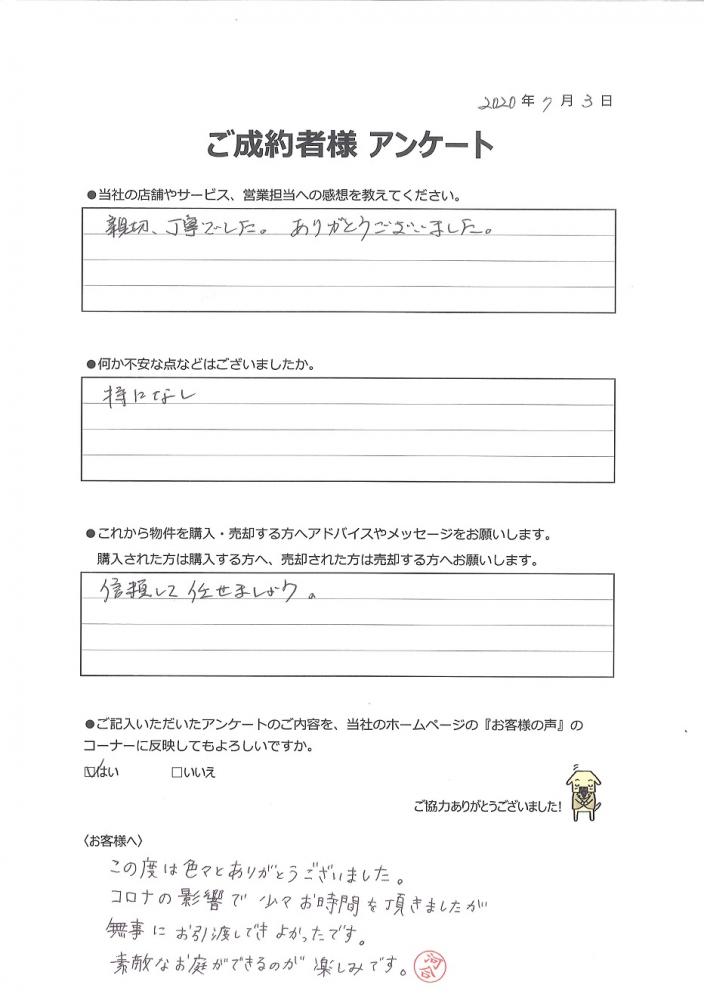 2020年7月3日
ご成約者様 アンケート
●当社の店舗やサービス、営業担当への感想を教えてください。
親切、丁寧でした。 ありがとうございました。
●何か不安な点などはございましたか。
特になし
●これから物件を購入・売却する方へアドバイスやメッセージをお願いします。
購入された方は購入する方へ、売却された方は売却する方へお願いします。
信頼して任せましょう。
●ご記入いただいたアンケートのご内容を、当社のホームページの『お客様の声』の
コーナーに反映してもよろしいですか。
☑はい □いいえ
ご協力ありがとうございました!
〈お客様へ〉
この度は色々とありがとうございました。
コロナの影響で少々お時間を頂きましたが
無事にお引渡しできよかったです。
素敵なお庭ができるのが楽しみです。
河合